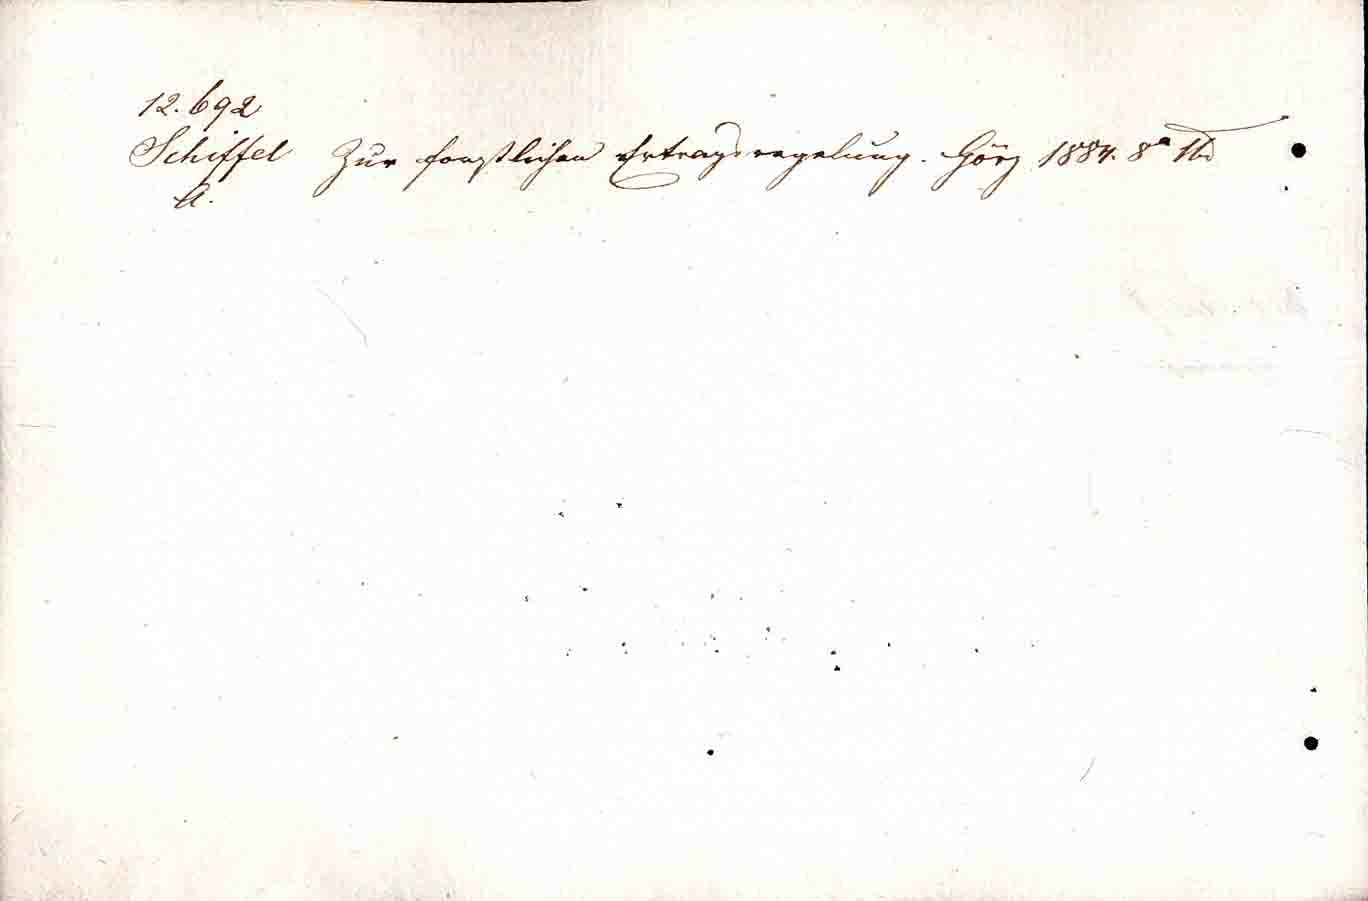 12.692
Schiffel Zur forstlichen Ertragsregelung. Görz 1884. 8°
A.